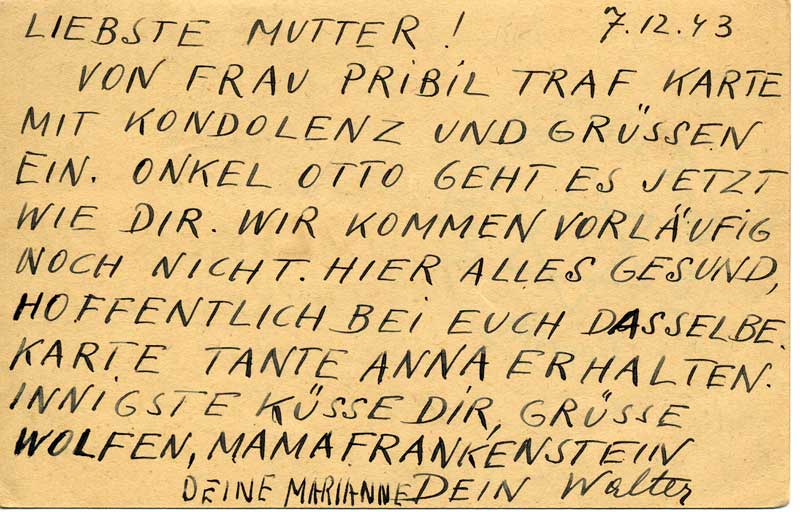 LIEBSTE MUTTER! 7.12.43
VON FRAU PRIBIL TRAF KARTE
MIT KONDOLENZ UND GRÜSSEN
EIN. ONKEL OTTO GEHT ES JETZT
WIE DIR. WIR KOMMEN VORLÄUFIG
NOCH NICHT. HIER ALLES GESUND,
HOFFENTLICH BEI EUCH DASSELBE.
KARTE TANTE ANNA ERHALTEN.
INNIGSTE KÜSSE DIR, GRÜSSE
WOLFEN, MAMA FRANKENSTEIN
DEINE MARIANNE DEIN Walter